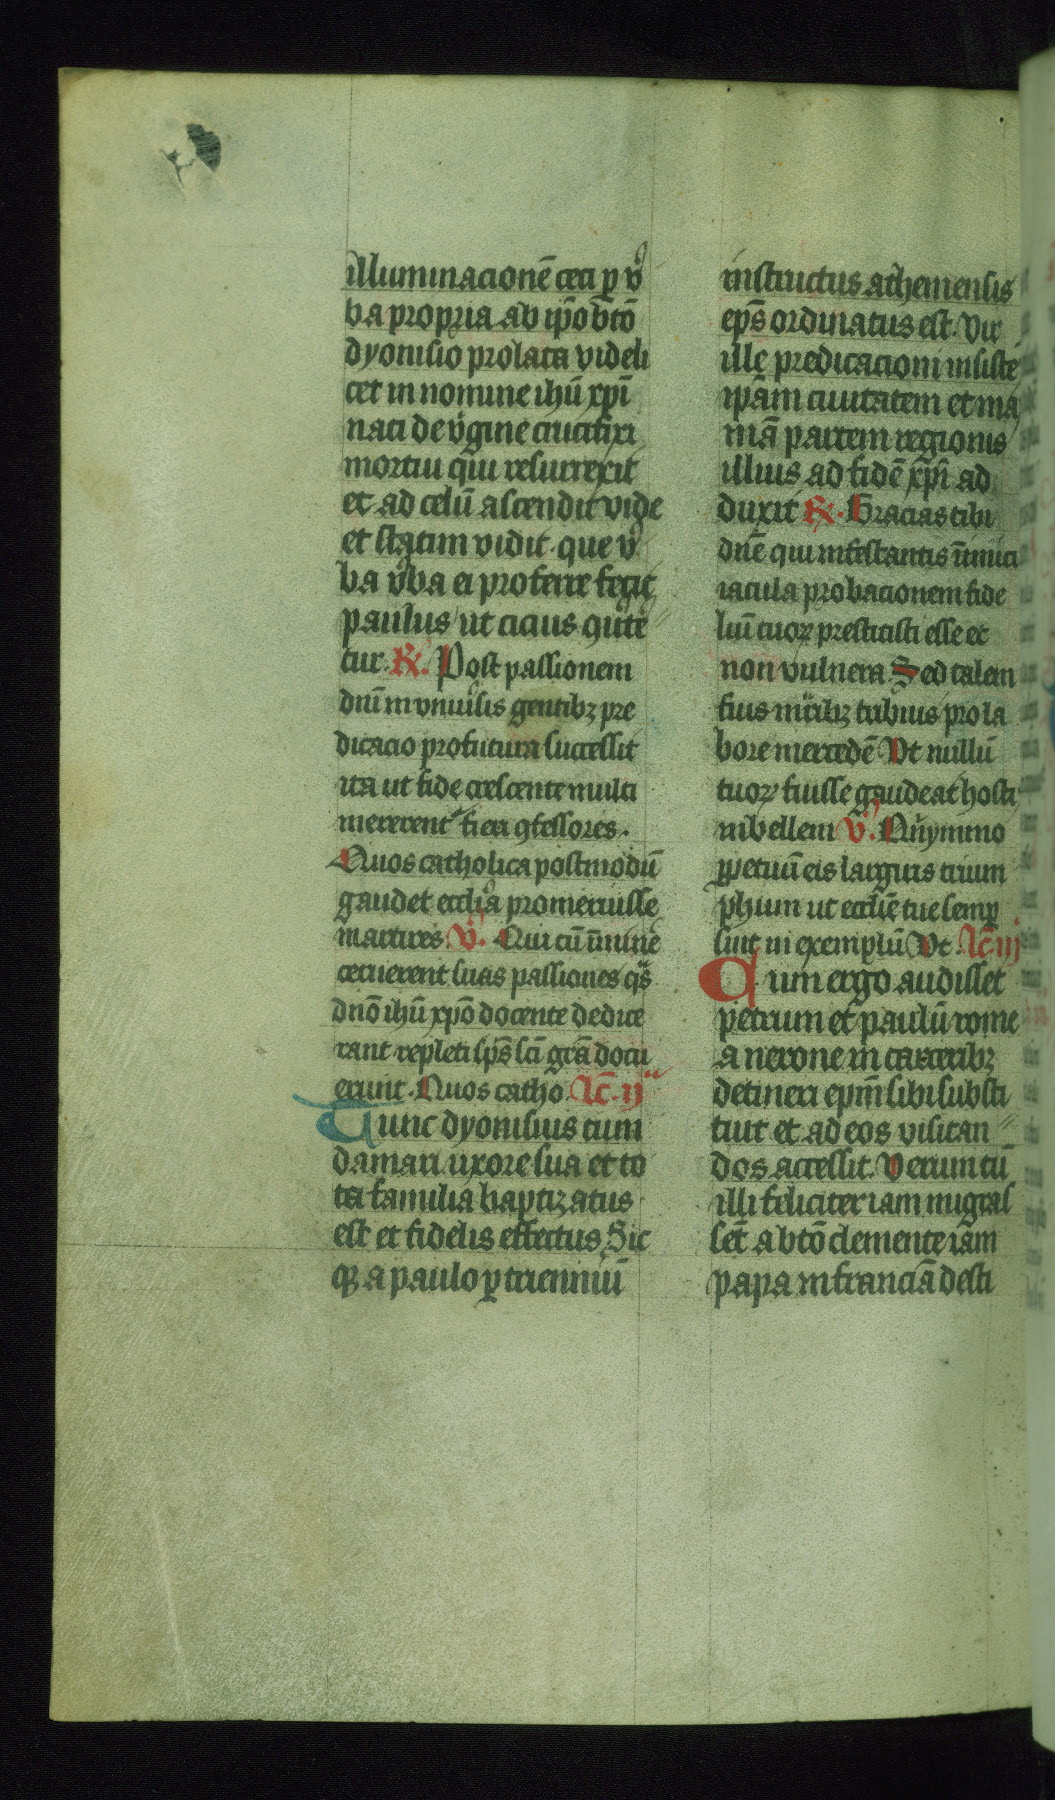 illuminacionē ceci ꝑ v̾
ba propria ab ip̄o bt̄o
dyonisio prolata videli
cet in nomine ihū xp̄i
nati de v̾gine crucifixi
mortui qui resurrexit
et ad celū ascendit vide
et statim vidit. que v̾
ba v̾ba ei proferre fecit
paulus ut cicius
tur. ℟. Post passionem
dn̄i in vniu̾sis gentibꝫ pre
dicacio profutura successit
ita ut fide crescente multi
mererent᷑ fieri ꝯfessores.
Quos catholica postmodū
gaudet eccl̄ia promeruisse
martires. v̾. Qui cū
cernerent suas passiones
dn̄o ihū xp̄o docente dedice
rant repleti sp̄s sc̄i gr̄a docu
erunt. Quos catho. Lc̄. ij
Tunc dyonisius cum
damari uxore sua et to
ta familia baptizatus
est et fidelis effectus. Sic
qꝫ a paulo ꝑ trienniū
instructus atheniensis
ep̄s ordinatus est. Vir
ille predicacioni insistē
ip̄am ciuitatem et ma
ximā partem regionis
illius ad fidē xp̄i ad
duxit ℟. Gracias tibi
dn̄e qui infestantis inimici
iacula probacionem fide
liū tuoꝝ prestitisti esse et
non vulnera Sed talem
suis tribuis pro la
bore mercedē Vt nullū
tuoꝝ fuisse gaudeat hosti
in bellem v̾. Qn̄ymmo
ꝑpetuū eis largiris trium
phum ut eccl̄ie tue semꝑ
sint in exemplū Vt. Lc̄ iij
Cum ergo audisset
petrum et paulū rome
a nerone in carceribꝫ
detineri ep̄m sibi substi
tiut et ad eos visitan
dos accessit. Verum cū
illi feliciter iam migras
sēt a bt̄o clemente iam
papa in franciā desti